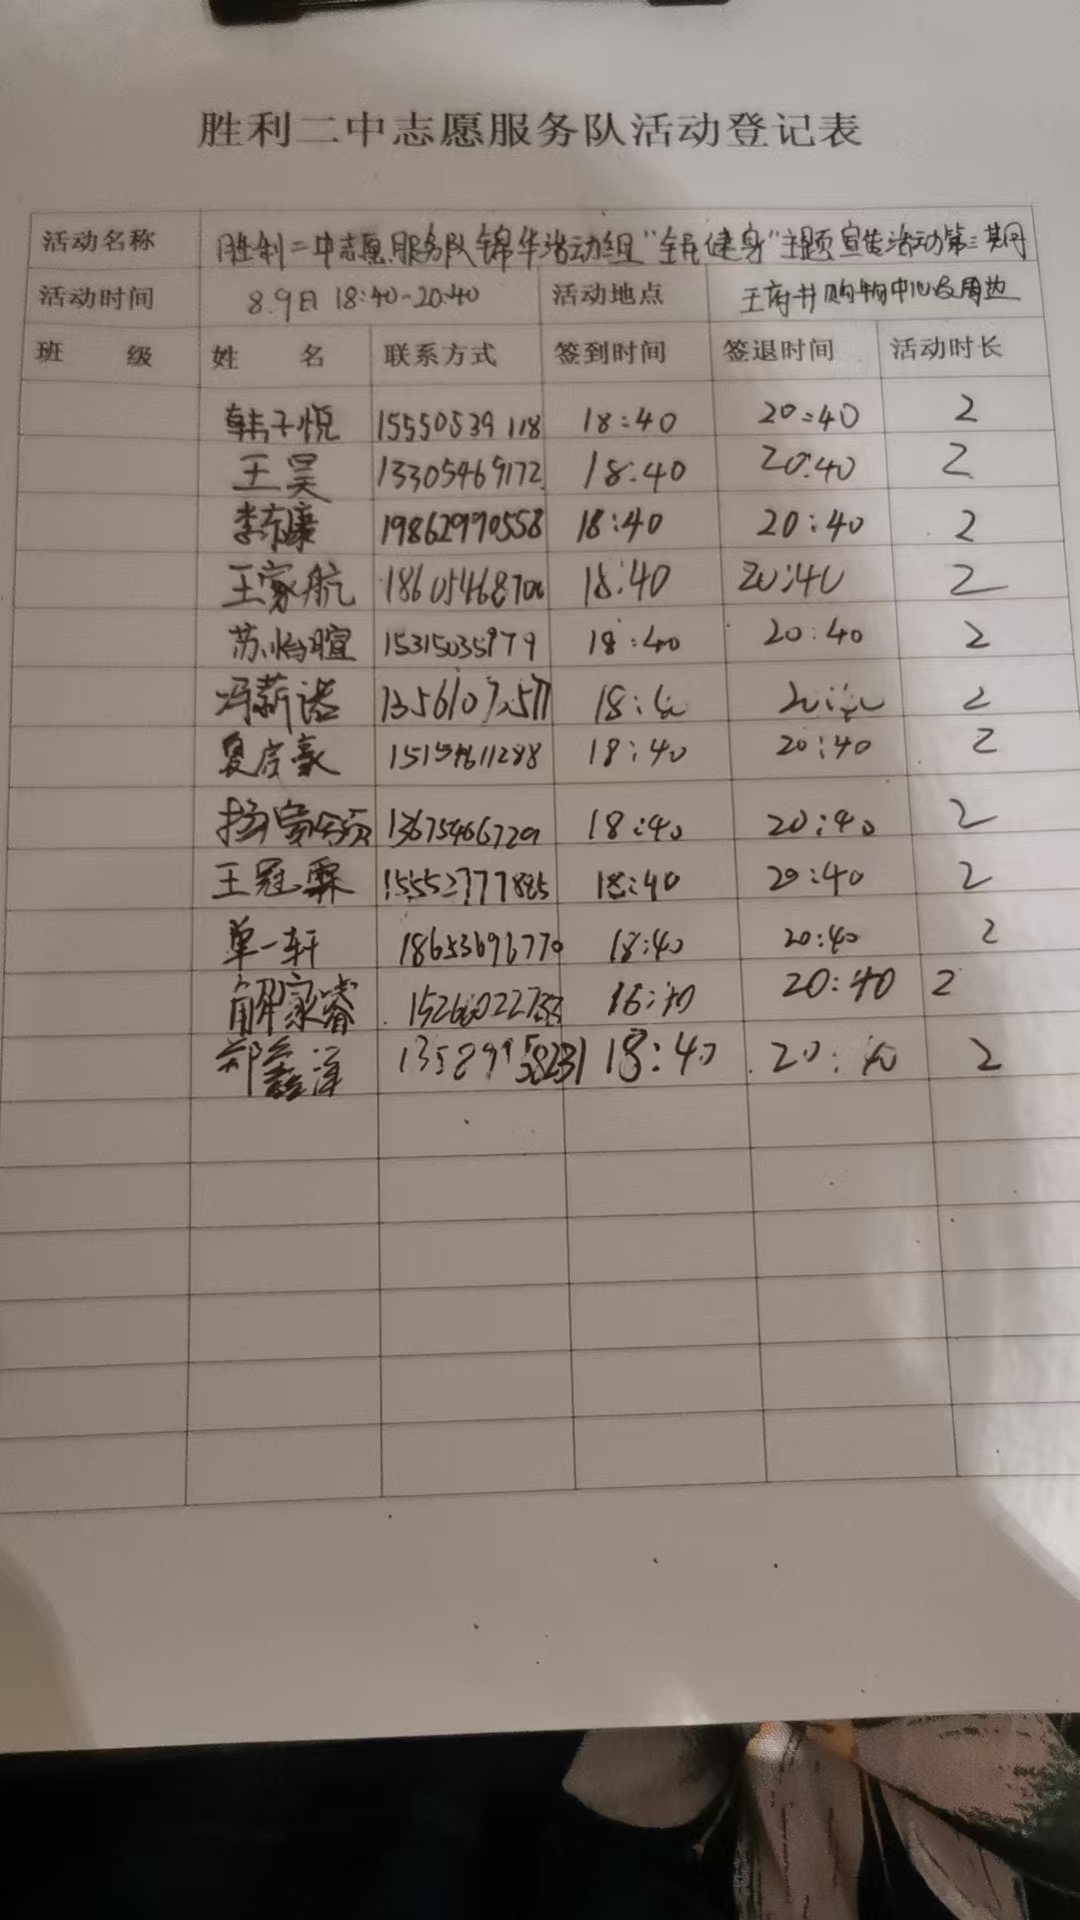 胜利二中志愿服务队活动登记表
活动名称 胜利二中志愿服务队锦华活动组"全民健身"主题宣传活动第三期
活动时间 8.9日 18:40-20:40 活动地点 王府井购物中心及周边
班 级 姓 名 联系方式 签到时间 签退时间 活动时长
韩子悦 15550539118 18:40 20:40 2
王昊 13305469172 18:40 20:40 2
李东康 19862990558 18:40 20:40 2
王家航 18:40 20:40 2
苏怡暄 15315035979 18:40 20:40 2
冯薪诺 18:40 20:40 2
夏彦豪 15154611288 18:40 20:40 2
13675466729 18:40 20:40 2
王冠霖 15552777885 18:40 20:40 2
单一轩 18653696770 18:40 20:40 2
解家睿 16:40 20:40 2
郑鑫洋 18:40 20:40 2